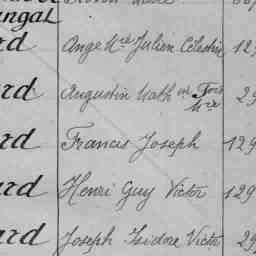 ngal
rd Ange Mce Julien Célestin 12
rd Augustin Math on Fort
Mce 29
rd Francis Joseph 129
ard Henri Guy Victor 129
ard Joseph Isidore Victr 29